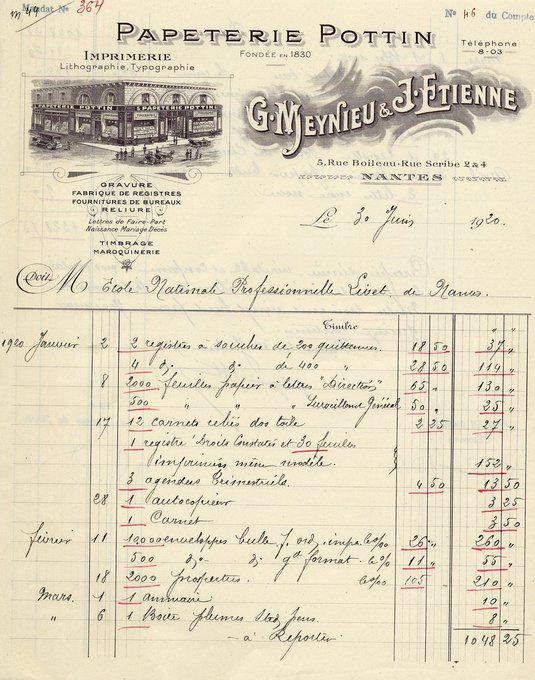 Mandat N° 364
N° 46 du Compte
PAPETERIE POTTIN
FONDÉE EN 1830
Téléphone
8-03
IMPRIMERIE
Lithographie, Typographie
PAPETERIE POTTIN
PAPETERIE POTTIN
G. MEYNIEU & J. ETIENNE
5, Rue Boileau-Rue Scribe 2 & 4
NANTES
GRAVURE
FABRIQUE DE REGISTRES
FOURNITURES DE BUREAUX
RELIURE
Lettres de Faire-Part
Naissance Mariage Décès
TIMBRAGE
MAROQUINERIE
Le 30 Juin 1920.
Doit M Ecole Nationale Professionnelle Livet, de Nantes.
Timbre
1920 Janvier 2 2 registres à souches de 200 quittances. 18 50 37 "
4 d° d° de 400 " 28 50 114 "
8 2000 feuilles papier à lettres "Direction" 65 " 130 "
500 " " " Surveillant Général 50 " 25 "
17 12 carnets reliés dos toile 2 25 27 "
1 registre "Droits Constatés et 30 feuilles
imprimées même modèle. 152 "
3 agendas trimestriels. 4 50 13 50
28 1 autocopieur 3 25
1 Carnet 3 50
février 11 10000 enveloppes bulle f. ord. impr. le % 26 " 260 "
500 d° d° gd format. le % 11 " 55 "
18 2000 prospectus. le % 105 210 "
Mars. 1 1 annuaire 10 "
" 6 1 Boite plumes 8 "
- à Reporter 1048 25